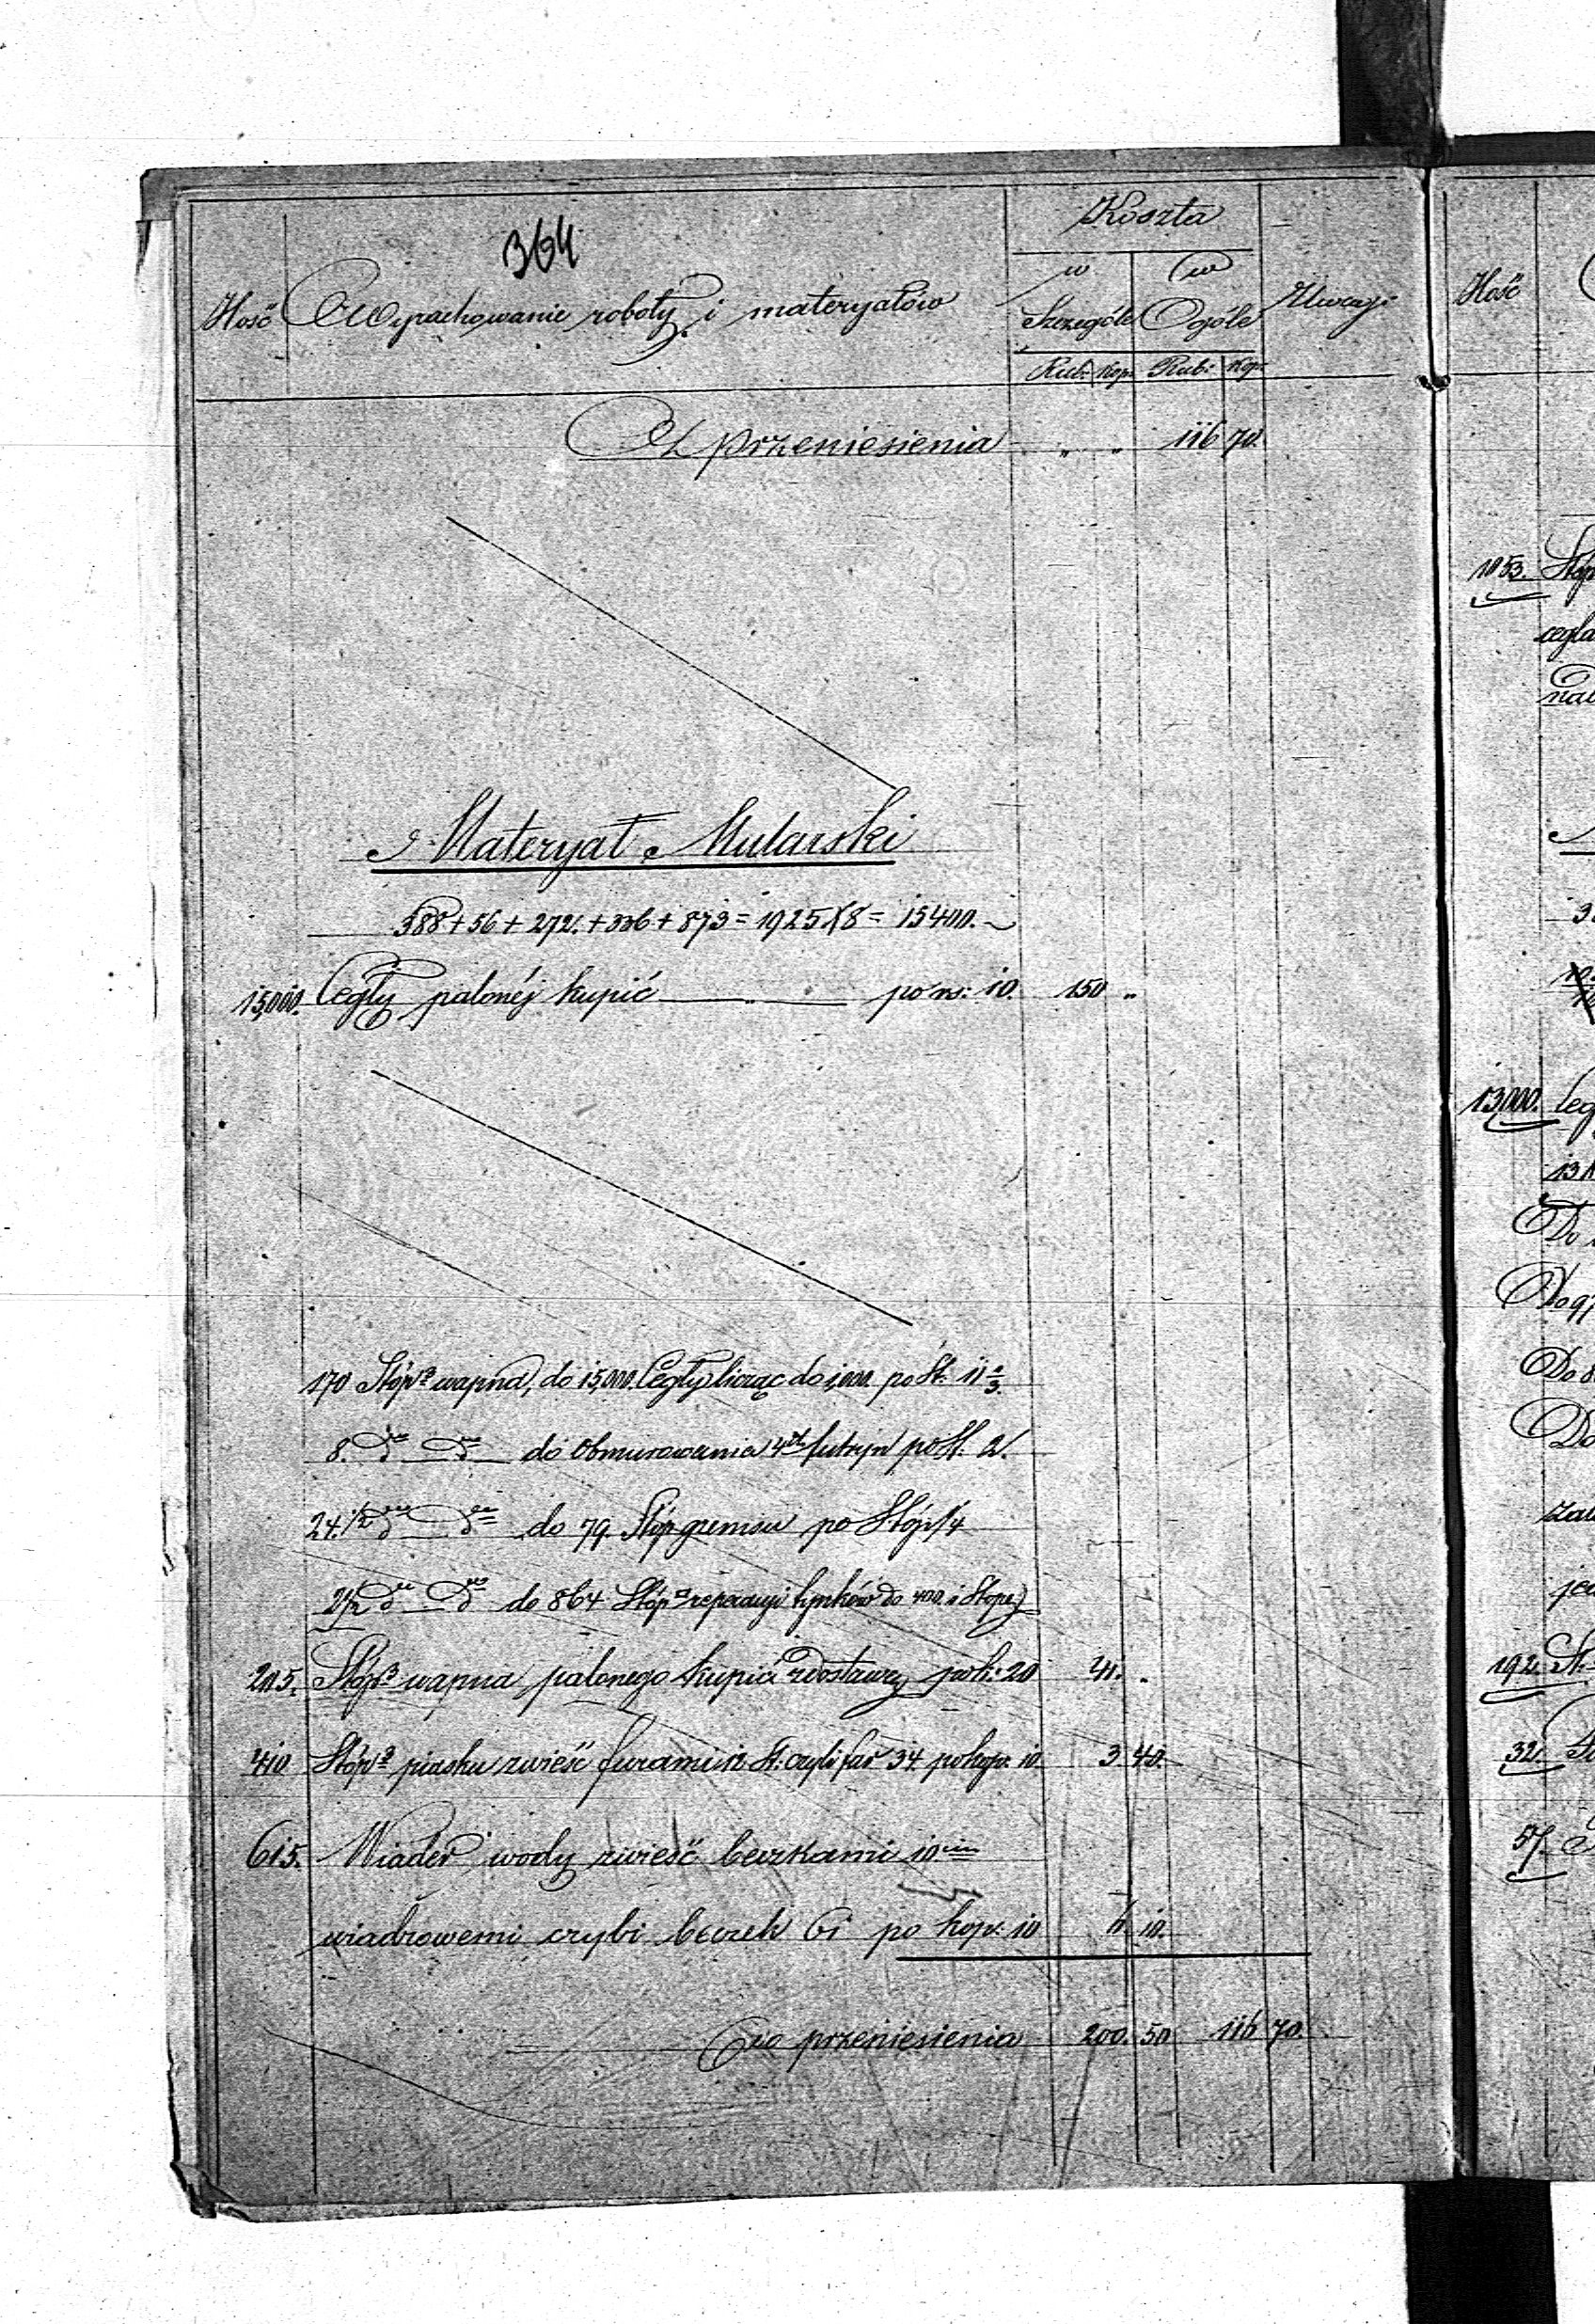 364
Koszta
Ilość Wyrachowanie roboty i materyałów w Szczególe w Ogóle Uwagi
Rub: Kop. Rub: Kop.
Z przeniesienia " " 116 70.
Materyał Mularski
388 + 56 + 272. + 336 + 873 = 1925 X 8 = 15400.
15,000. Cegły palonéj kupić " po rs: 10. 150 "
170 Stóp³ wapna, do 15,000. Cegły licząc do 1,000. po St. 11 1/3.
8. do obmurowania 4ch futryn po St. 2.
24.1/2 do 79. Stóp gzemsu po Stóp 1/4
2 1/2 do 864 Stóp reperacyi tynków do 400. 1 Stopę
205. Stóp³ wapna palonego kupić z dostawą po k: 20 41. "
410 Stóp³ piasku zwieść furami 12 St: czyli fur 34. po kop. 10. 3. 40.
615. Wiader wody zwieść beczkami 10cio
wiadrowemi czyli beczek 61 po kop. 10 6. 10.
Do przeniesienia 200. 50 116 70.
Ilość
1053.
cegla
13,000. Ceg
Do
Do
192. St.
32.
57.